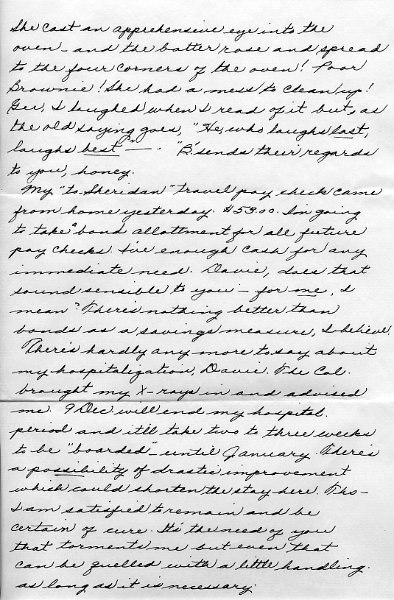 She cast an apprehensive eye into the
oven - and the batter rose and spread
to the four corners of the oven! Poor
Brownie! She had a mess to clean up!
Gee, I laughed when I read of it but, as
the old saying goes, "He, who laughs last,
laughs best" - . "B" sends their regards
to you, honey.
My "to Sheridan" travel pay check came
from home yesterday. $59.00. I'm going
to take a bond allottment for all future
pay checks. I've enough cash for any
immediate need. Davie, does that
sound sensible to you - for me, I
mean? There's nothing better than
bonds as a savings measure, I believe.
There's hardly any more to say about
my hospitalization, Davie. The Col.
brought my X-rays in and advised
me. 9 Dec will end my hospital
period and it'll take two to three weeks
to be "boarded" - until January. There's
a possibility of drastic improvement
which could shorten the stay here. Tho -
I am satisfied to remain and be
certain of cure. It's the need of you
that torments me but even that
can be quelled with a little handling.
as long as it is necessary.